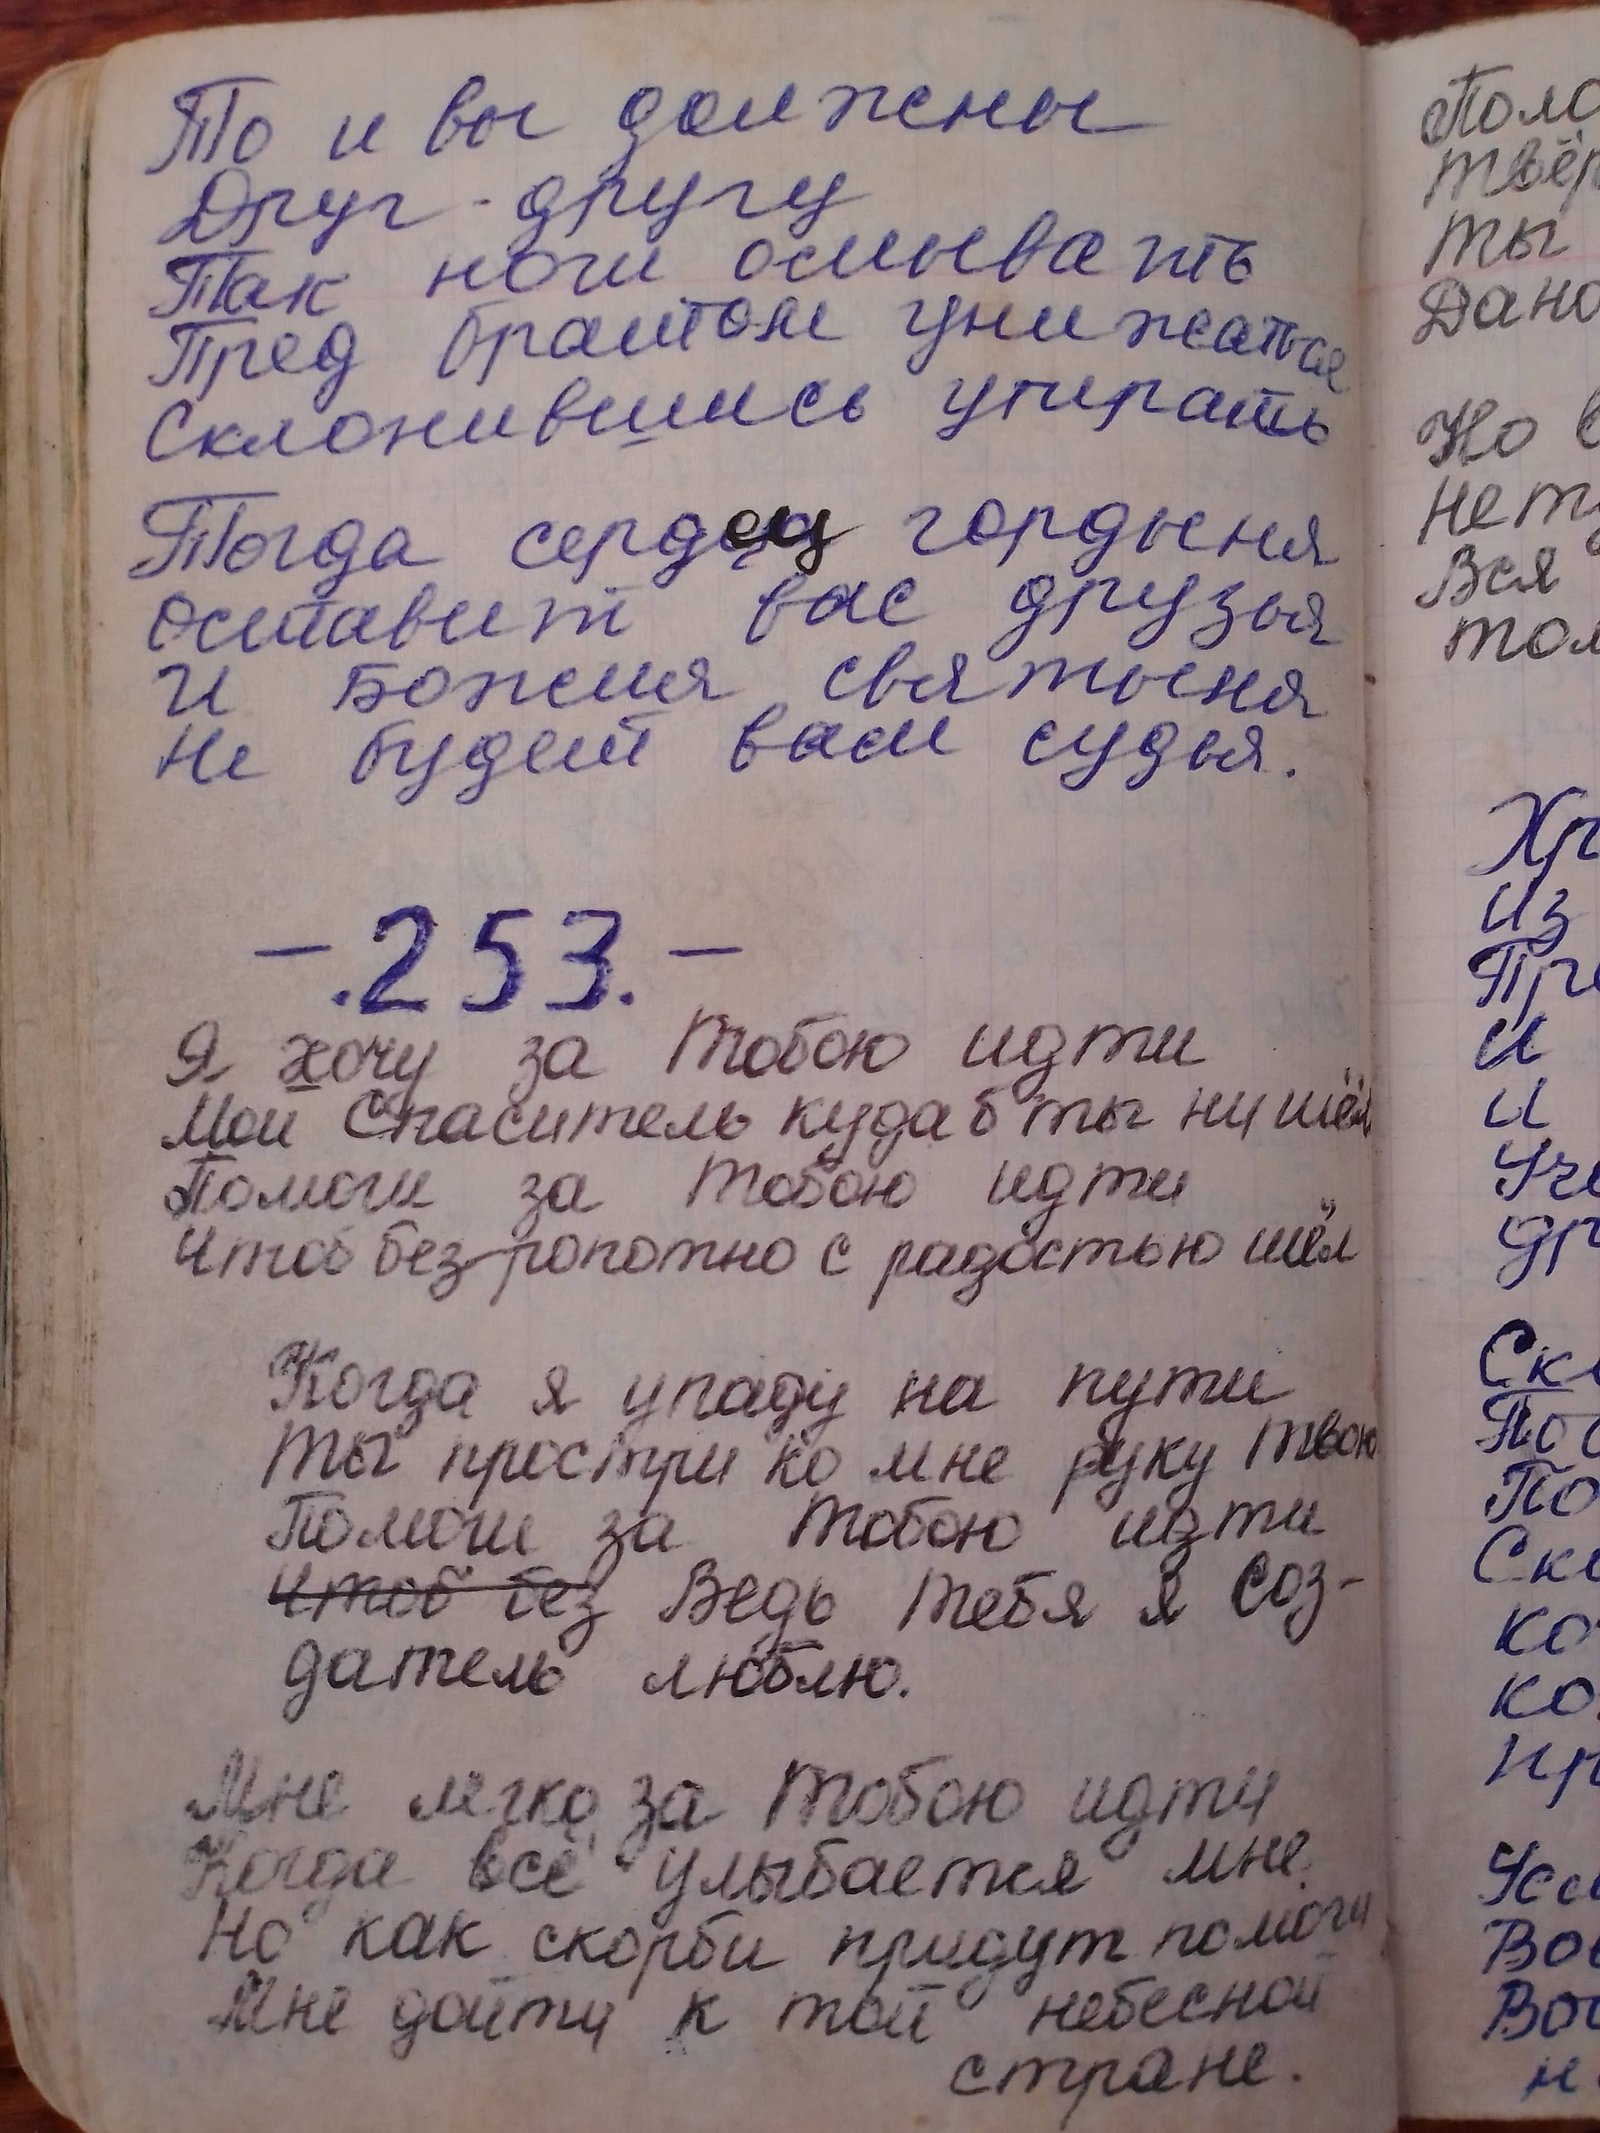 То и вы должны
Друг-другу
Так ноги омывать
Пред братом унижаться
Склонившись утирать
Тогда сердец гордыня
оставит вас друзья
И Божия святыня
Не будет вам судья.
-.253.-
Я хочу за Тобою идти
Мой Спаситель куда б ты ни шёл
Помоги за Тобою идти
Чтоб безропотно с радостью шёл
Когда я упаду на пути
Ты простри ко мне руку Твою
Помоги за Тобою идти
Чтоб без Ведь Тебя я Соз-
датель люблю.
Мне легко за Тобою идти
Когда всё улыбается мне.
Но как скорби придут помоги
Мне дойти к той небесной
стране.
ты
Но
Вся
Из
И
И